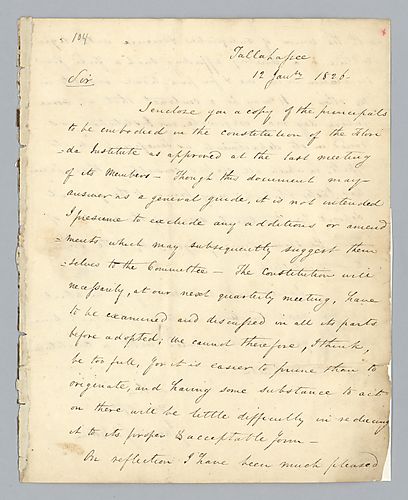 104
Tallahassee
12 Jany. 1826
Sir
I enclose you a copy of the principals
to be embodied in the constitution of the Flori
=da Institute as approved at the last meeting
of its Members – Though this document may
answer as a general guide, it is not intended
I presume to exclude any additions or amend
=ments, which may subsequently suggest them
=selves to the Committee – The Constitution will
necessarily, at our next quarterly meeting, have
to be examined and discussed in all its parts
before adopted; we cannot therefore, I think,
be too full, for it is easier to prune than to
originate, and having some substance to act
on there will be little difficulty in reducing
it to its proper & acceptable form –
On reflection I have been much pleased